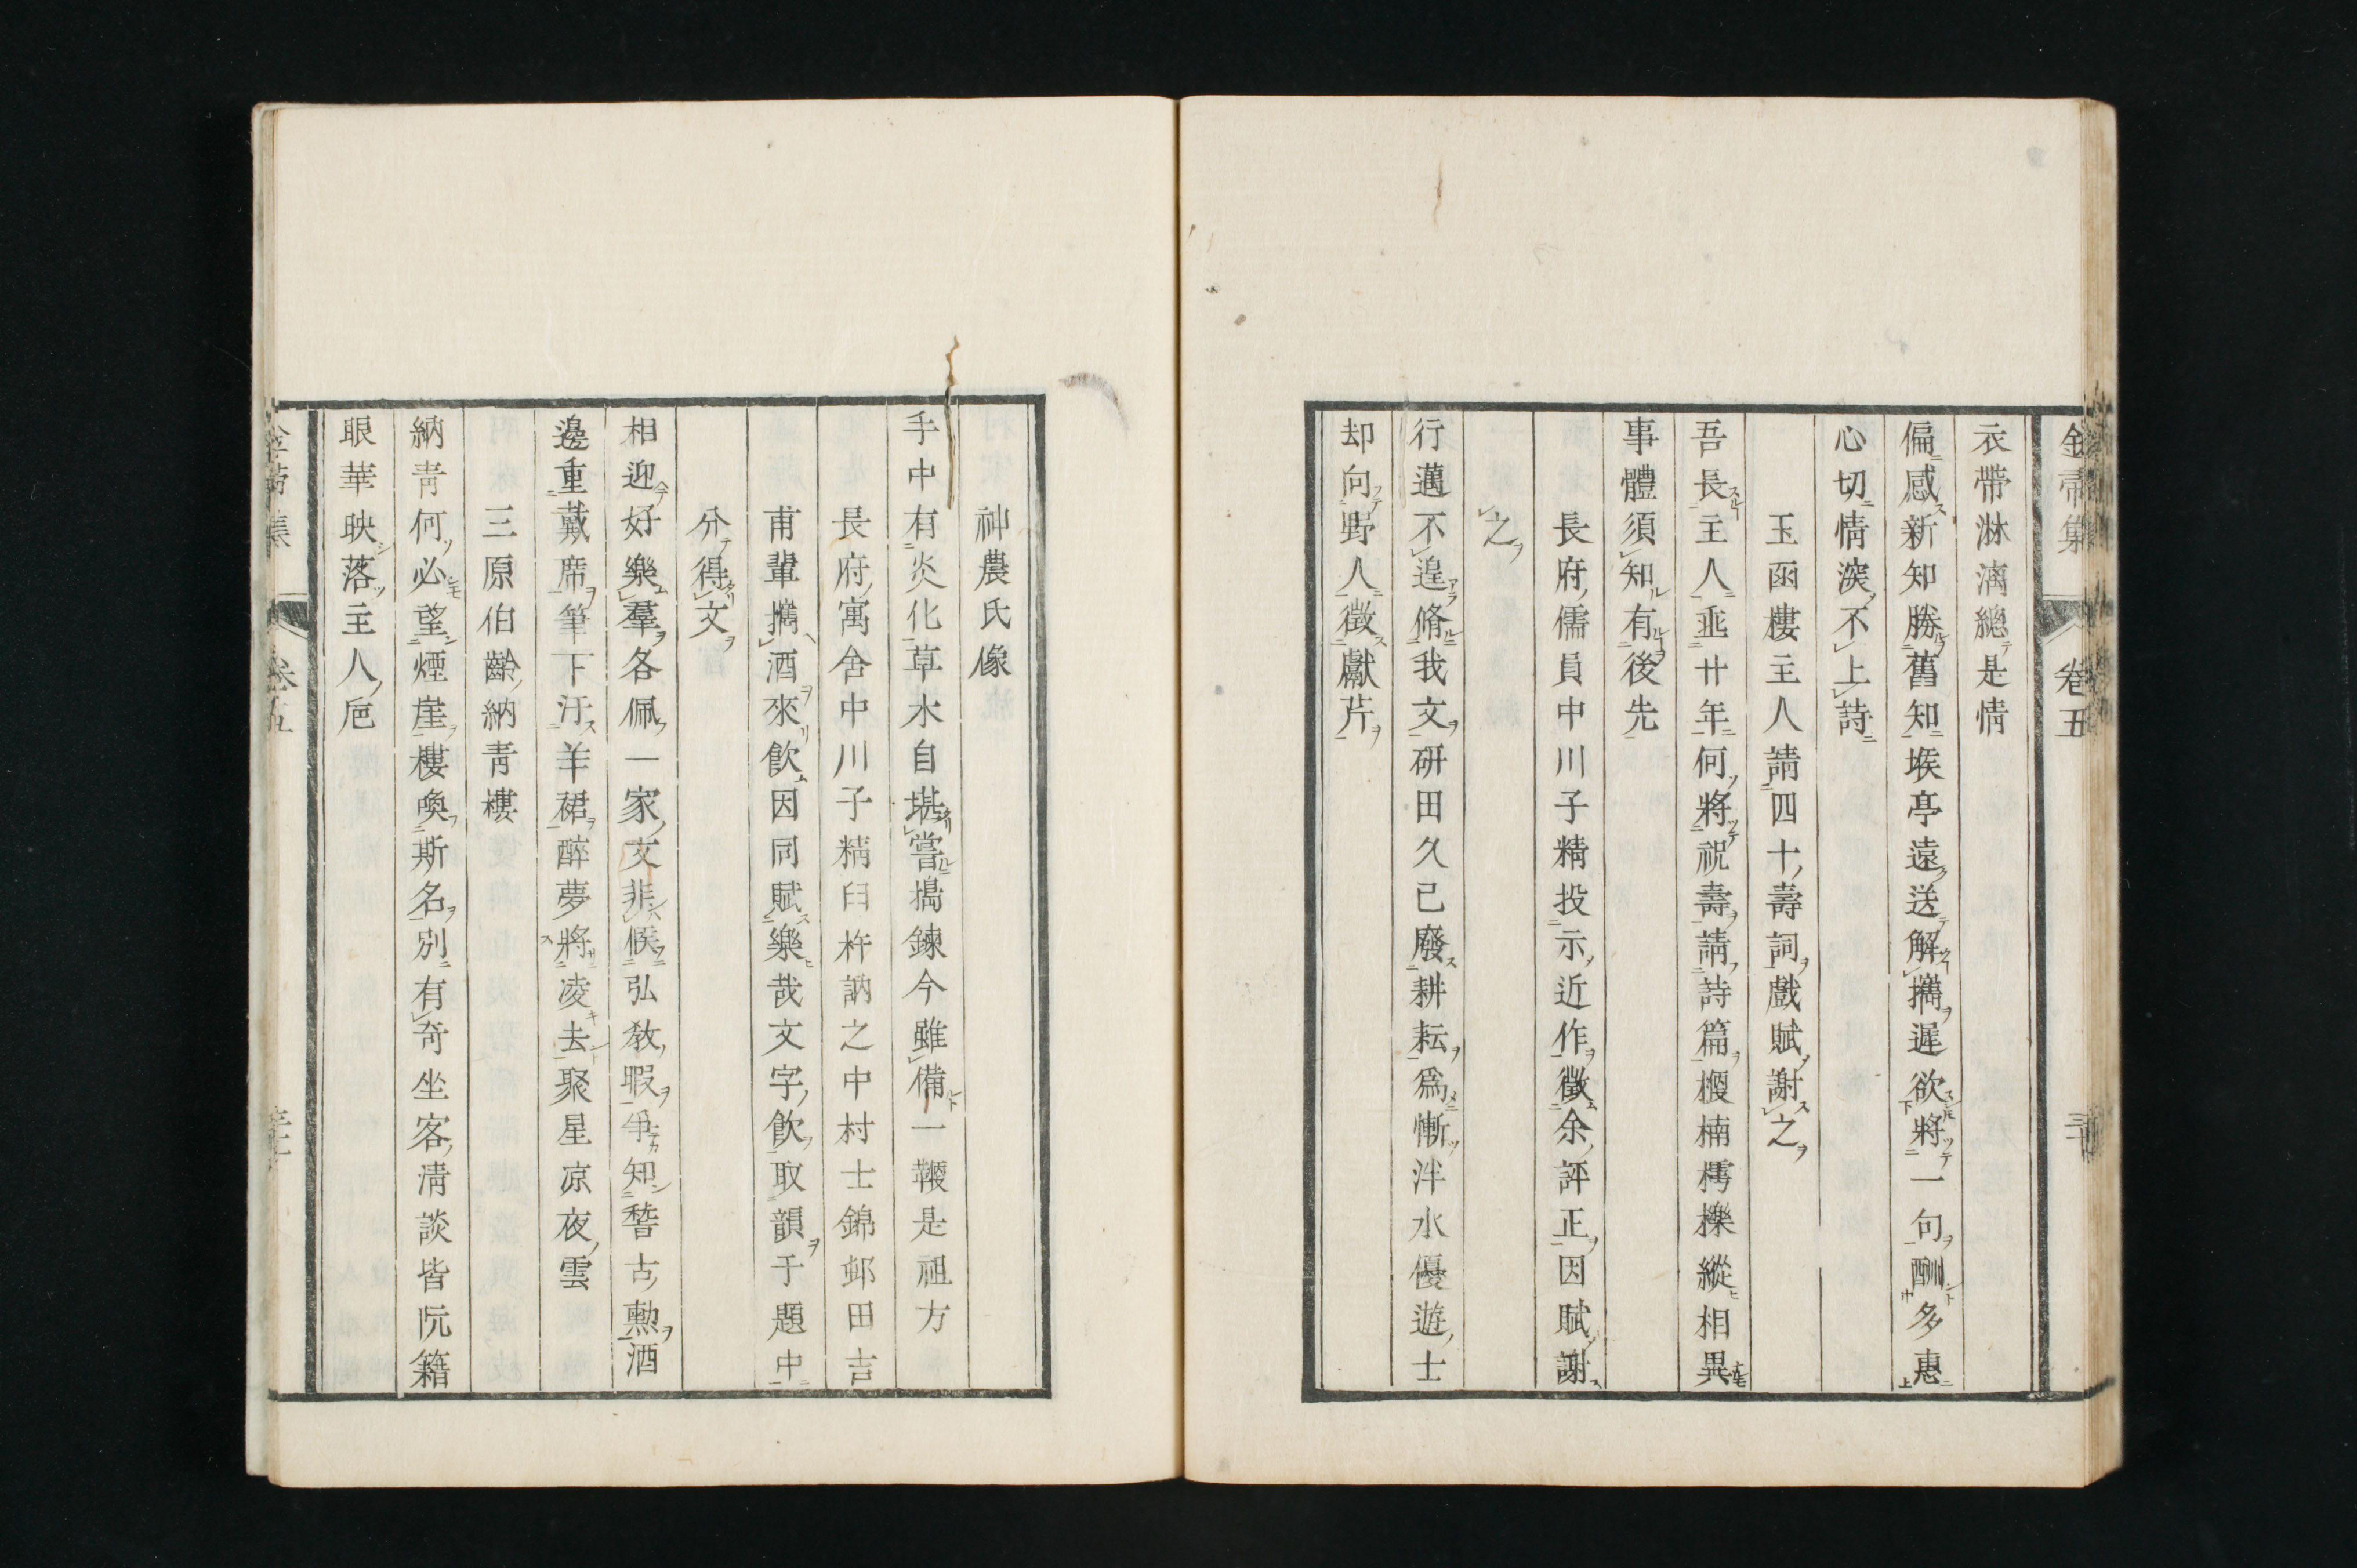 金帚集 卷五
衣帶淋漓總是情
偏感新知勝舊知堠亭遠送解攜遲欲將一句酬多惠
心切情深不上詩
玉函樓主人請四十壽詞戲賦謝之
吾長主人垂廿年何將祝壽請詩篇楩楠樗櫟縱相異
事體須知有後先
長府儒員中川子精投示近作徵余評正因賦謝
之
行邁不遑脩我文研田久已廢耕耘爲慚泮水優遊士
却向野人徵獻芹
神農氏像
手中有炎化草木自堪嘗搗鍊今雖備一鞭是祖方
長府寓舍中川子精臼杵訥之中村士錦邨田吉
甫輩攜酒來飲因同賦樂哉文字飲取韻于題中
分得文
相迎好樂羣各佩一家文非候弘教暇爭知稽古勳酒
邊重戴席筆下汙羊裙醉夢將凌去聚星凉夜雲
三原伯齡納青樓
納青何必望煙崖樓喚斯名別有奇坐客淸談皆阮籍
眼華映落主人巵
卷五